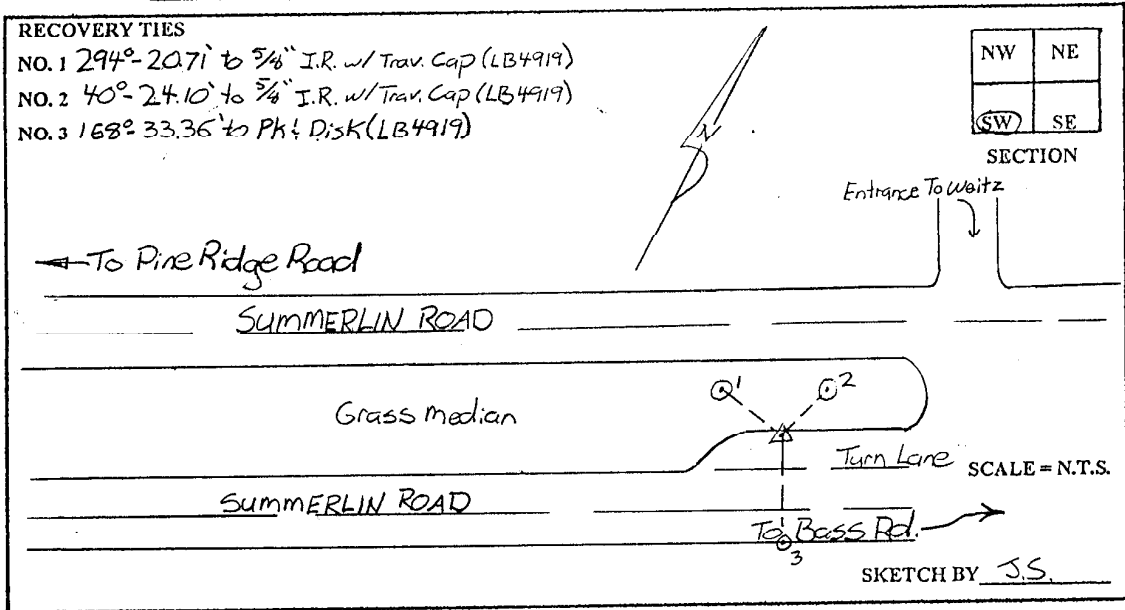 RECOVERY TIES
NO. 1 294°- 20.71' to 5/8" I.R. w/ Trav. Cap (LB4919)
NO. 2 40°- 24.10' to 5/8" I.R. w/ Trav. Cap (LB4919)
NO. 3 168°- 33.36' to Pk & Disk (LB4919)
NW NE
SW SE
SECTION
N
Entrance To Weitz
To Pine Ridge Road
SUMMERLIN ROAD
1 2
Grass Median
Turn Lane
SCALE = N.T.S.
SUMMERLIN ROAD
To Bass Rd.
3
SKETCH BY J.S.